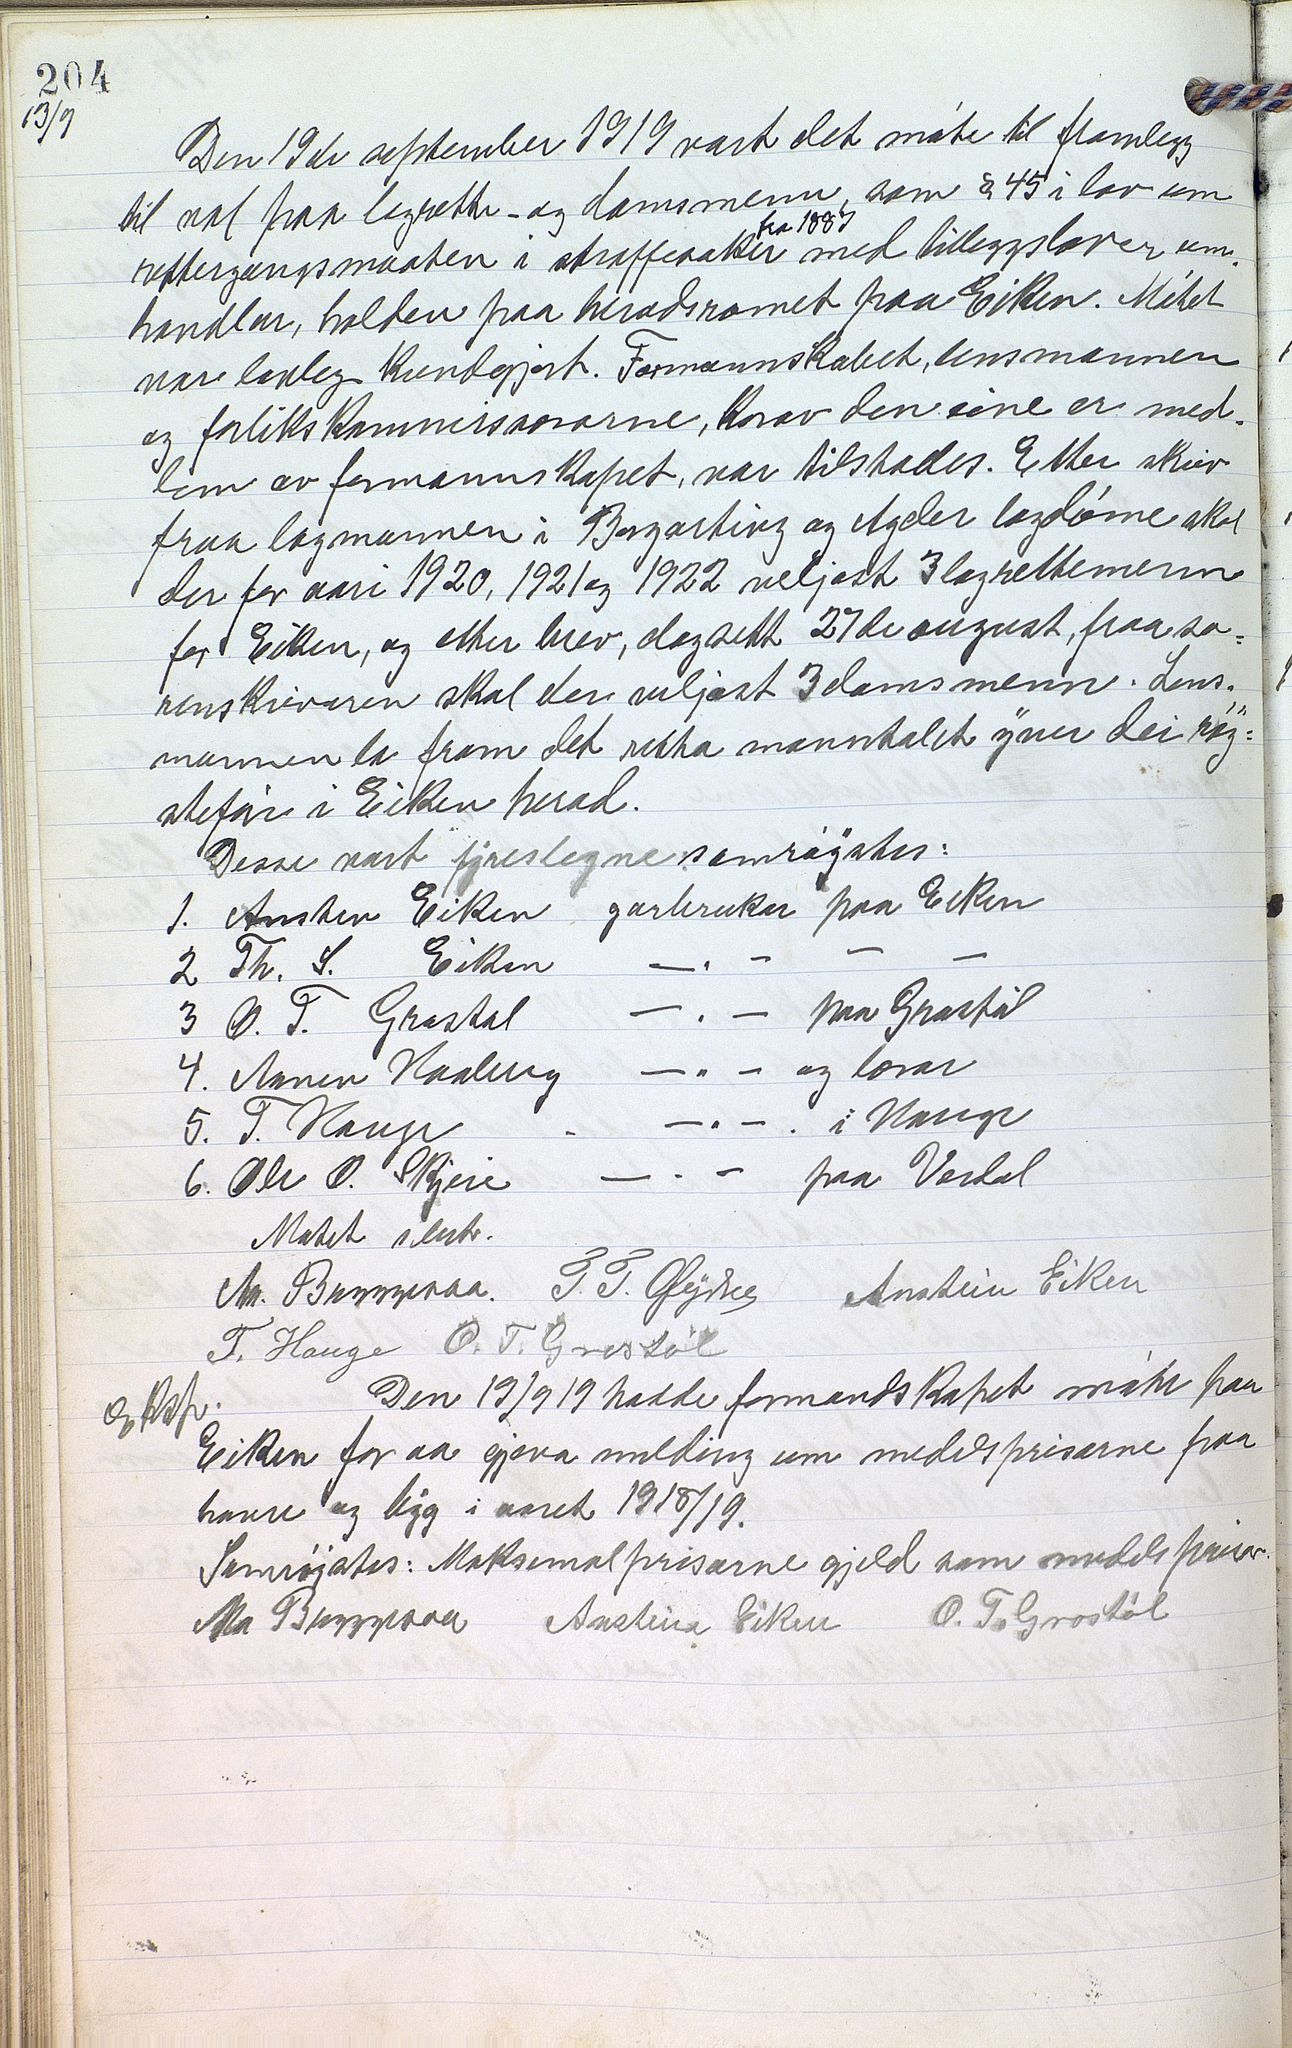 204
13/9
Den 19de september 1919 vart det møte til framlegg
til val paa lagrette- og domsmenn, som § 45 i lov um
rettergangsmaaten i straffesaker fra 1887 med tilleggslover um-
handlar, halden paa heradsromet paa Eiken. Møtet
var lovleg kundgjort. Formannskabet, lensmannen
og forlikskommissærarne, korav den eine er med-
lem av formannskapet, var tilstades. Etter skriv
fraa lagmannen i Borgarting og Agder lagdøme skal
der for aari 1920, 1921 og 1922 veljast 3 lagrettemenn
for Eiken, og etter brev, dagsett 27de august, fraa so-
renskrivaren skal der veljast 3 domsmenn. Lens-
mannen la fram det retta manntalet yver dei røy-
steføre i Eiken herad.
Desse vart fyreslegne samrøystes:
1. Ansten Eiken garbrukar paa Eiken
2 Th. S. Eiken —.- — —
3 O. T. Grastøl —.— paa Grastøl
4. Aanen Haaberg —.— og lærar
5. T. Hauge —.—. i Hauge
6. Ole O. Skjeie —.— paa Verdal
Møtet slutt.
An. Bryggesaa. T. T. Øydne Anstein Eiken
T. Hauge O. T. Grostøl
Eksp.
Den 19/9 19 hadde formandskapet møte paa
Eiken for aa gjeva melding um medelsprisarne paa
havre og bygg i aaret 1918/19.
Samrøystes: Maksimalprisarne gjeld som medelsprisar.
An Bryggesaa Anstein Eiken O. T. Grostøl